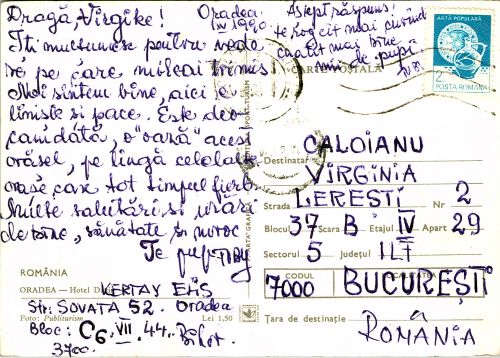 Dragă, Virgike!
Oradea.
IV 1990.
Aștept răspuns!
te rog cît mai curînd
cu atît mai bine
mii de pupi
Iți mulțumesc pentru vede
re pe care mi-ai trimis
Noi sîntem bine, aici e
liniste si pace. Este deo
camdată, o "oară" acest
orăsel, pe lîngă celelalte
orase care tot timpul fierb
Multe salutări si urări
de bine, sănătate si noroc
Te pup
CARTE POȘTALĂ
ARTĂ POPULARĂ
2 L
POSTA ROMÂNA
Destinatar CALOIANU
VIRGINIA
Strada LEREȘTI Nr 2
Blocul 37 Scara B Etajul IV Apart 29
Sectorul 5 Județul ILF
CODUL LOCALITATEA
7000 BUCUREȘTI
Țara de destinație ROMÂNIA
ROMÂNIA
ORADEA — Hotel
Str: SOVATA 52. Oradea
Foto: Publiturism Lei 1,50
Bloc: C6. VII. 44. Bihor.
3700.